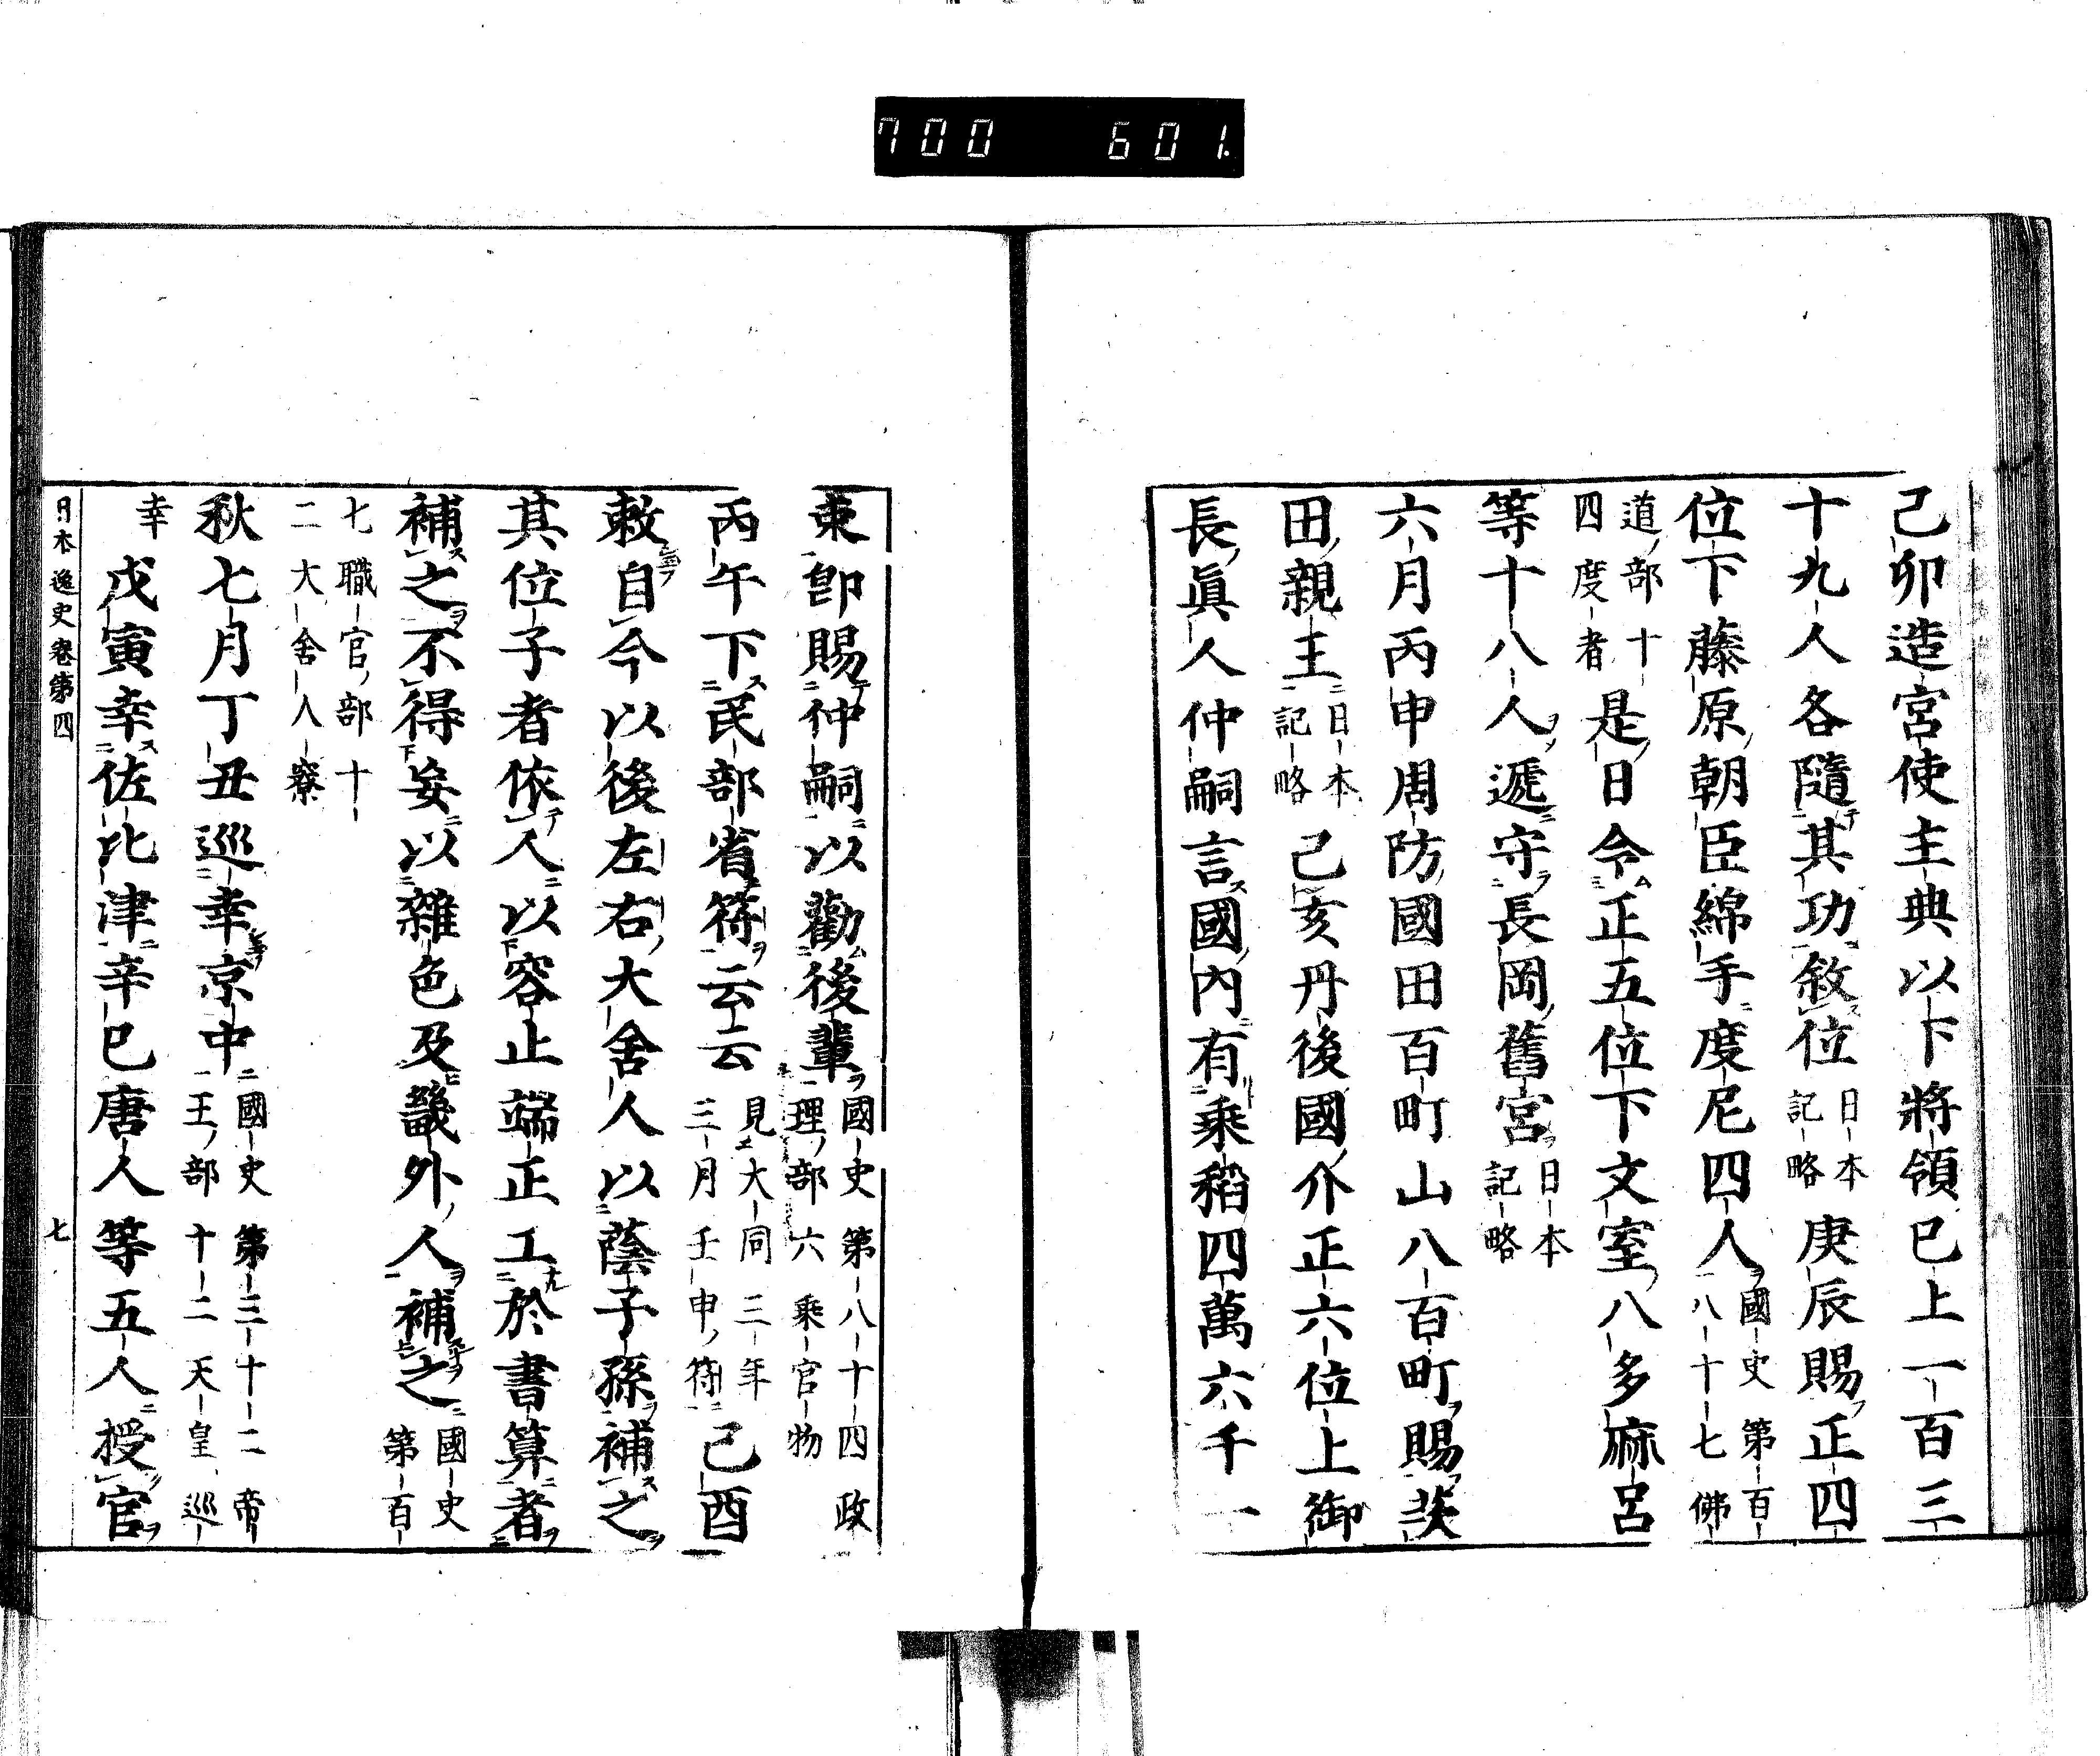 700 601.
己卯造宮使主典以下將領已上一百三
十九人各隨其功敘位日本記略庚辰賜正四
位下藤原朝臣綿手度尼四人國史第百八十七佛
道部十四度者是日令正五位下文室八多麻呂
等十八人遞守長岡舊宮日本記略
六月丙申周防國田百町山八百町賜談
田親王日本記略己亥丹後國介正六位上御
長眞人仲嗣言國內有乘稻四萬六千一
束卽賜仲嗣以勸後輩國史第八十四政理部六乘官物
丙午下民部省符云云見大同三年三月壬申符己酉
敕自今以後左右大舍人以蔭子孫補之
其位子者依人以容止端正工於書算者
補之不得妄以雜色及畿外人補之國史第百
七職官部十二大舍人寮
秋七月丁丑巡幸京中國史第三十二帝王部十二天皇巡
幸戊寅幸佐比津辛巳唐人等五人授官
日本逸史卷第四 七